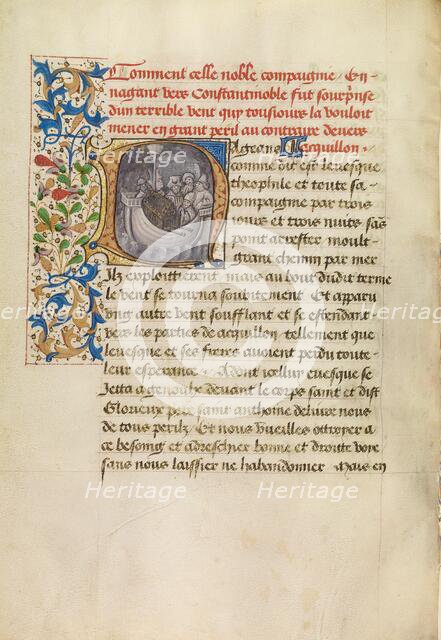 Comment celle noble compaignie En
nagant vers Constantinoble fut sourprinse
dun terrible vent quy tousiours la vouloit
mener en grant peril au contraire devers
Nageans Acquillon.
comme dit est levesque
theophile et toute sa
compaignie par trois
iours et trois nuits sãs
point arrester moult
grant chemin par mer
Ilz exploittierent mais au bout dudit terme
le vent se tourna soubitement Et apparu
ung autre vent soufflant et se estendant
vers les parties de acquillon tellement que
levesque et ses freres avoient perdu toute
leur esperance Dont icellui evesque se
Jetta a genoulz devant le corps saint et dist
Glorieux pere saint anthoine delivre nous
de tous perilz Et nous vueilles ottroyer a
ce besoing et adreschier bonne et droitte voye
sans nous laissier ne habandonner Mais en
Heritage Heritage
Heritage Heritage Heritage
Heritage Heritage